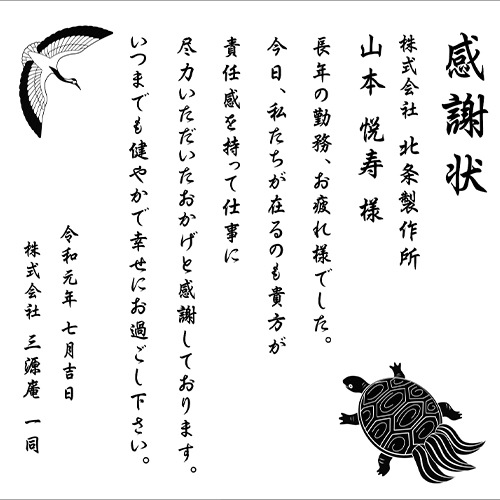 感謝状
株式会社 北条製作所
山本 悦寿 様
長年の勤務、お疲れ様でした。
今日、私たちが在るのも貴方が
責任感を持って仕事に
尽力いただいたおかげと感謝しております。
いつまでも健やかで幸せにお過ごし下さい。
令和元年 七月吉日
株式会社 三源庵 一同